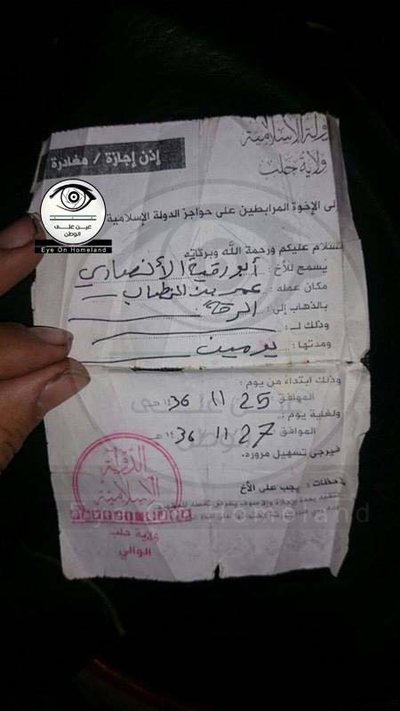 الدولة الإسلامية
ولاية حلب
إذن إجازة / مغادرة
عين على
الوطن
Eye On Homeland
إلى الإخوة المرابطين على حواجز الدولة الإسلامية
السلام عليكم ورحمة الله وبركاته
يسمح للأخ : أبو رقية الأنصاري
مكان عمله : عمر بن الخطاب
بالذهاب إلى : الرقة
وذلك لـ :
ومدتها : يومين
وذلك ابتداءً من يوم :
الموافق 25 11 1436 هـ
ولغاية يوم :
الموافق 27 11 1436 هـ
فيرجى تسهيل مروره.
ملاحظات : يجب على الأخ
الدولة
الإسلامية
ولاية حلب
الوالي